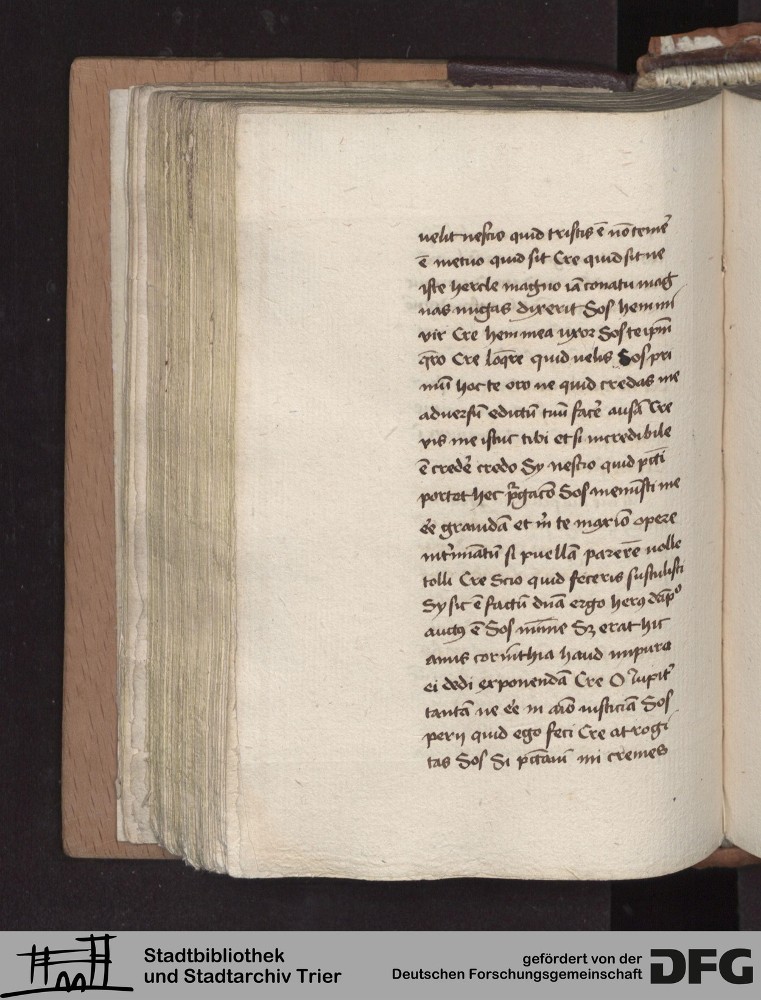 uelit nescio quid tristis ē nō temer̄
ē metuo quid sit Cre quid sit ne
iste hercle magno iā conatu mag
nas nugas dixerit Sos hem mi
vir Cre hem mea uxor Sos te ip̄m
q̄ro Cre loq̄re quid uelis Sos pri
mū hoc te oro ne quid credas me
aduersū edictū tuū facē ausā Cre
vis me istuc tibi et si incredibile
ē credē credo Sy nescio quid pctī
portat hec p̄gacō Sos meministi me
ēe grauidā et m̄ te maxīo opere
int̄minatū si puellā parerē nolle
tolli Cre Scio quid feceris sustulisti
Sy sic ē factū dnā ergo herꝯ dāpᵒ
auctꝯ ē Sos mīnīe Sꝫ erat hic
anus corinthia haud impura
ei dedi exponendā Cre O Iupit̄
tantā ne ēe in aīo insticiā Sos
perij quid ego feci Cre at rogi
tas Sos Si pctāui mi cremes
Stadtbibliothek
und Stadtarchiv Trier
gefördert von der
Deutschen Forschungsgemeinschaft
DFG